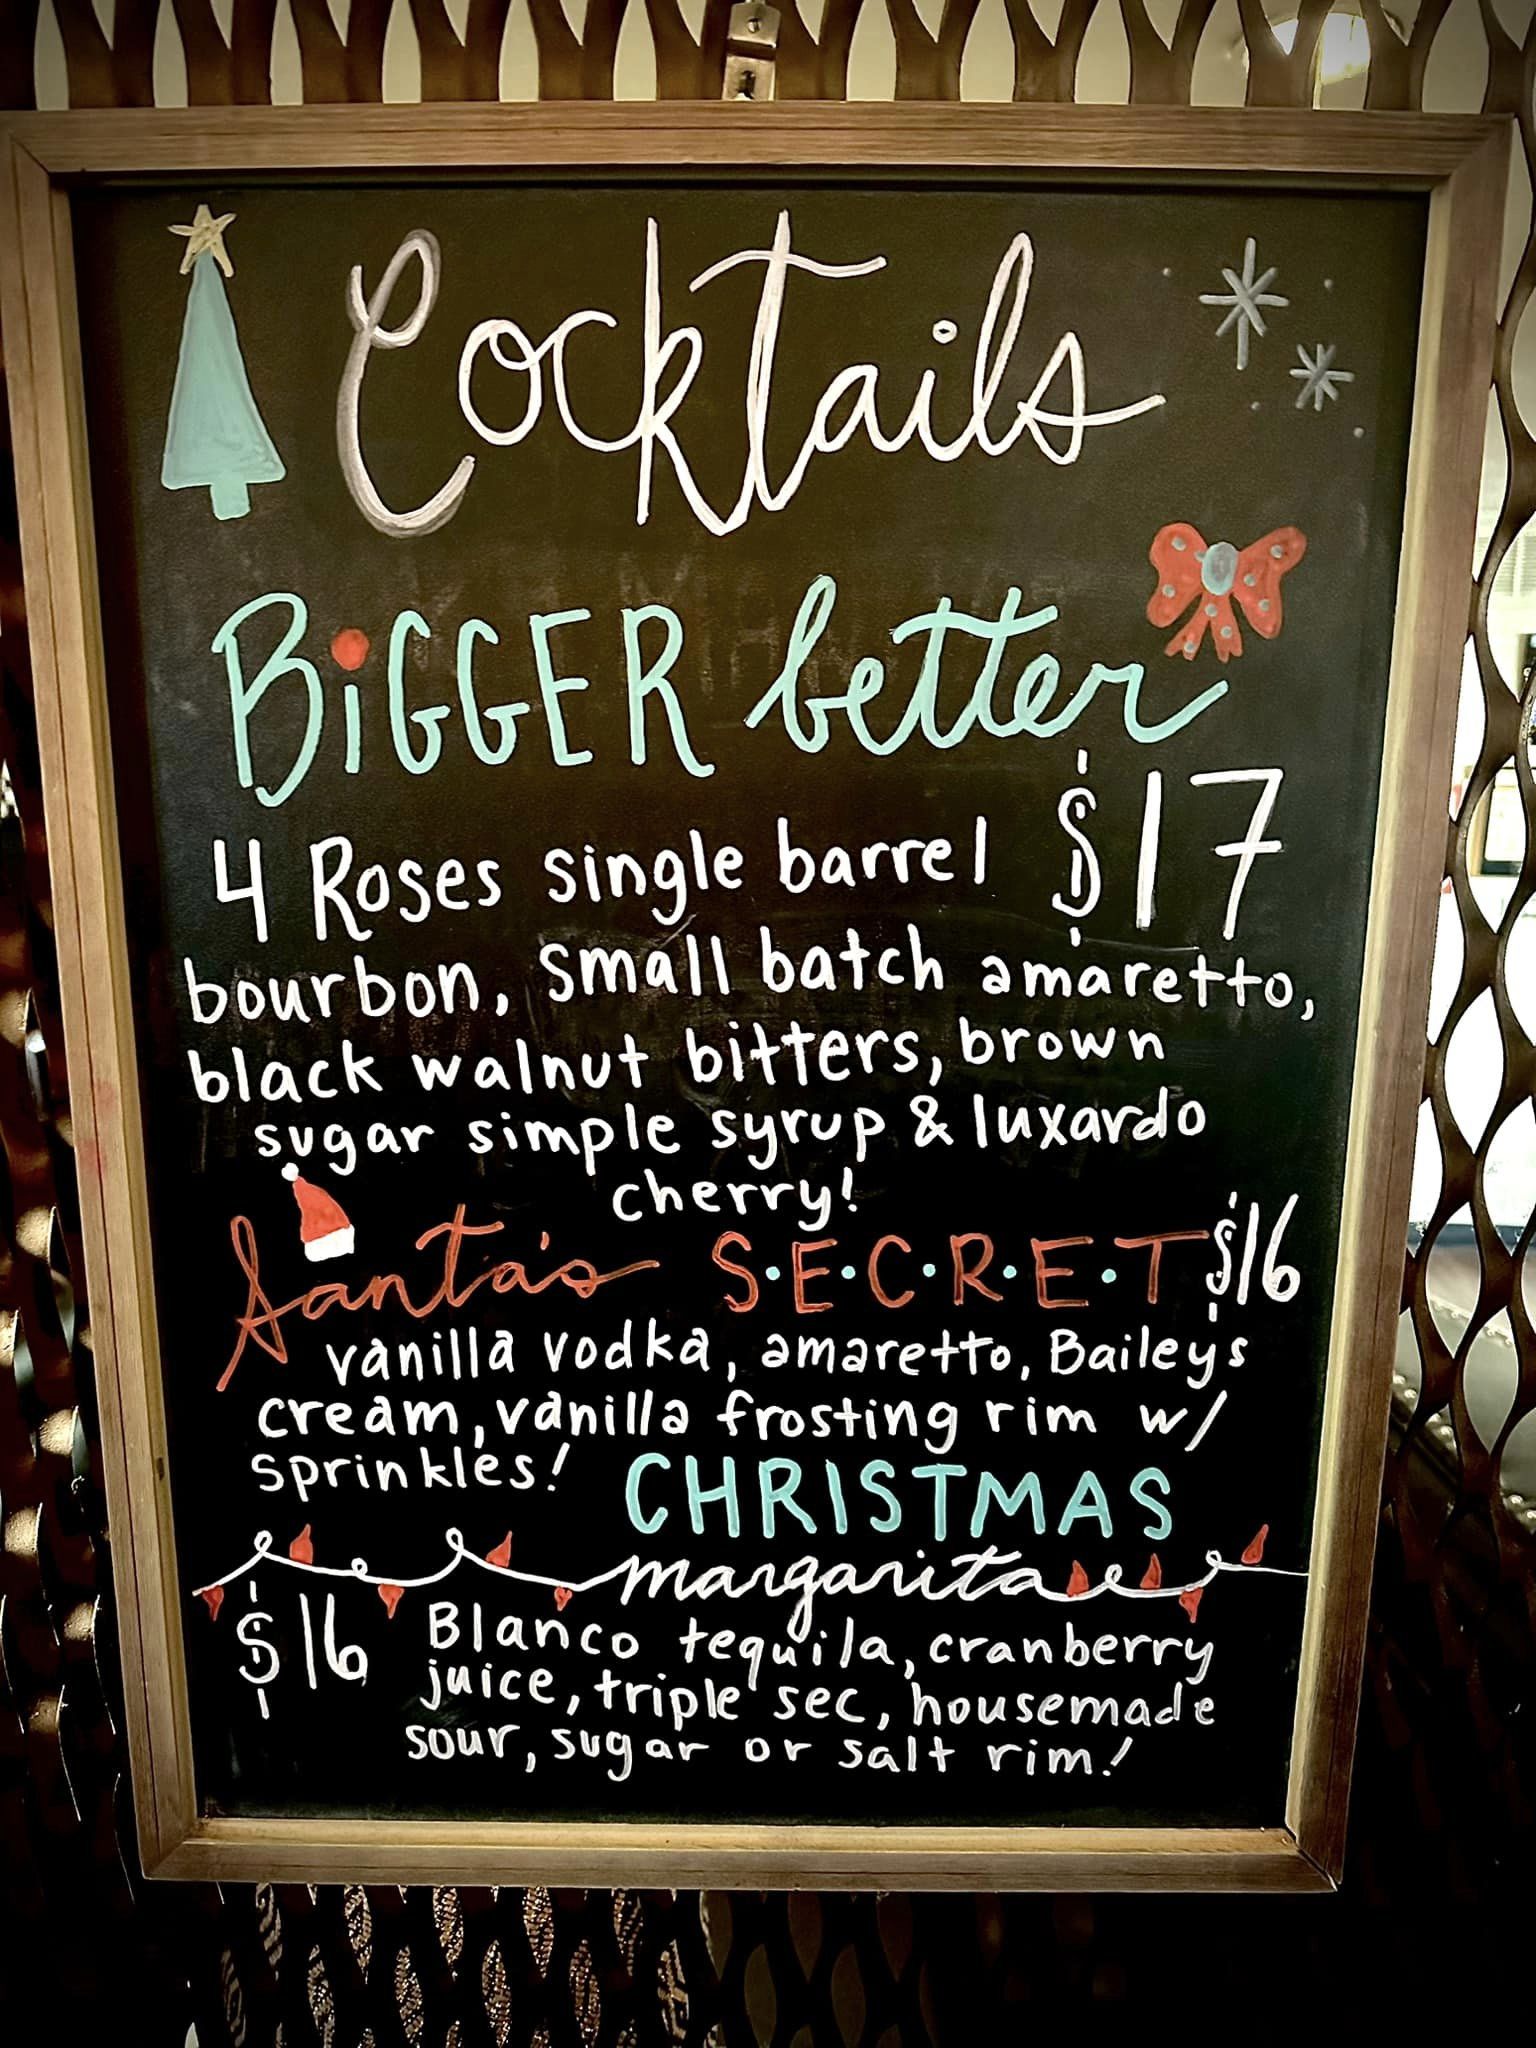 Cocktails
BiGGER better
4 Roses single barrel $17
bourbon, small batch amaretto,
black walnut bitters, brown
sugar simple syrup & luxardo
cherry!
Santa's S•E•C•R•E•T $16
vanilla vodka, amaretto, Baileys
cream, vanilla frosting rim w/
sprinkles!
CHRISTMAS
margarita
$16 Blanco tequila, cranberry
juice, triple sec, housemade
sour, sugar or salt rim!